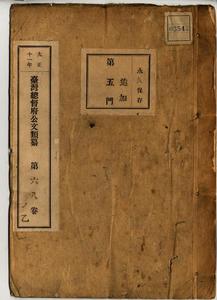 大正
十一年
臺灣總督府公文類纂
第六八卷
乙
永久保存
追加
第五門